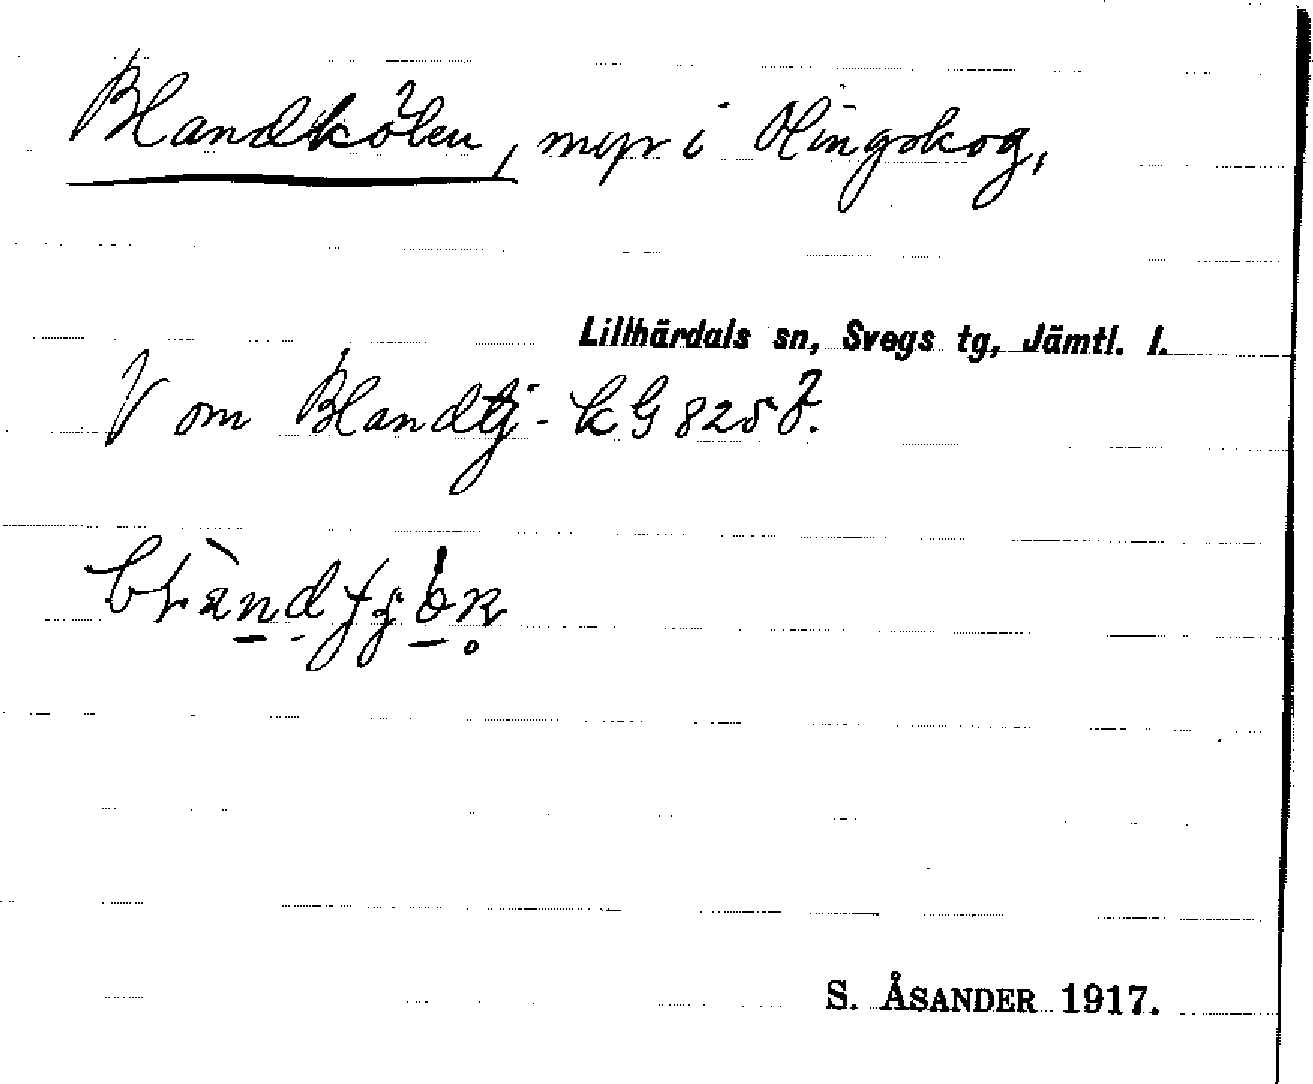 Blandkölen, myr i Olingskog,
Lillhärdals sn, Svegs tg, Jämtl. l.
V om Blandtj- kG 825
S. ÅSANDER 1917.